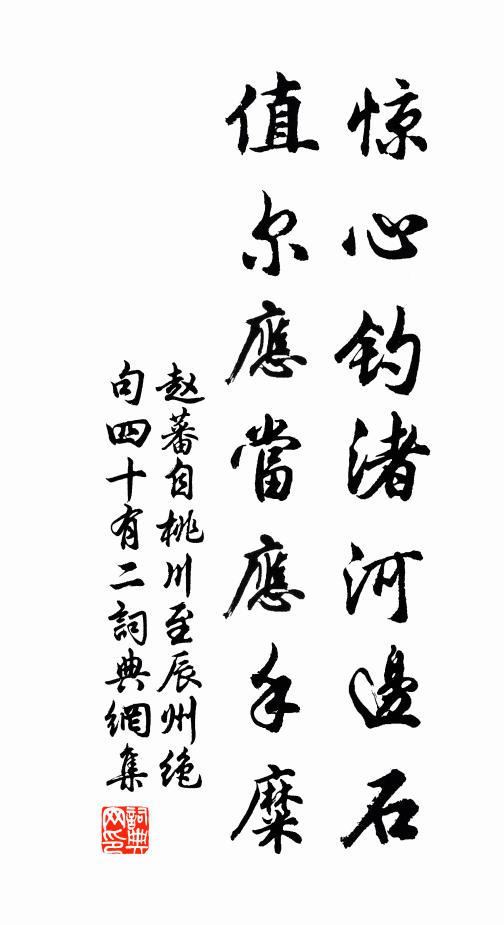 惊心钓渚河边石
值尔應當應手糜
赵蕃自桃川至辰州绝
句四十有二詞典網集
詞典
网印